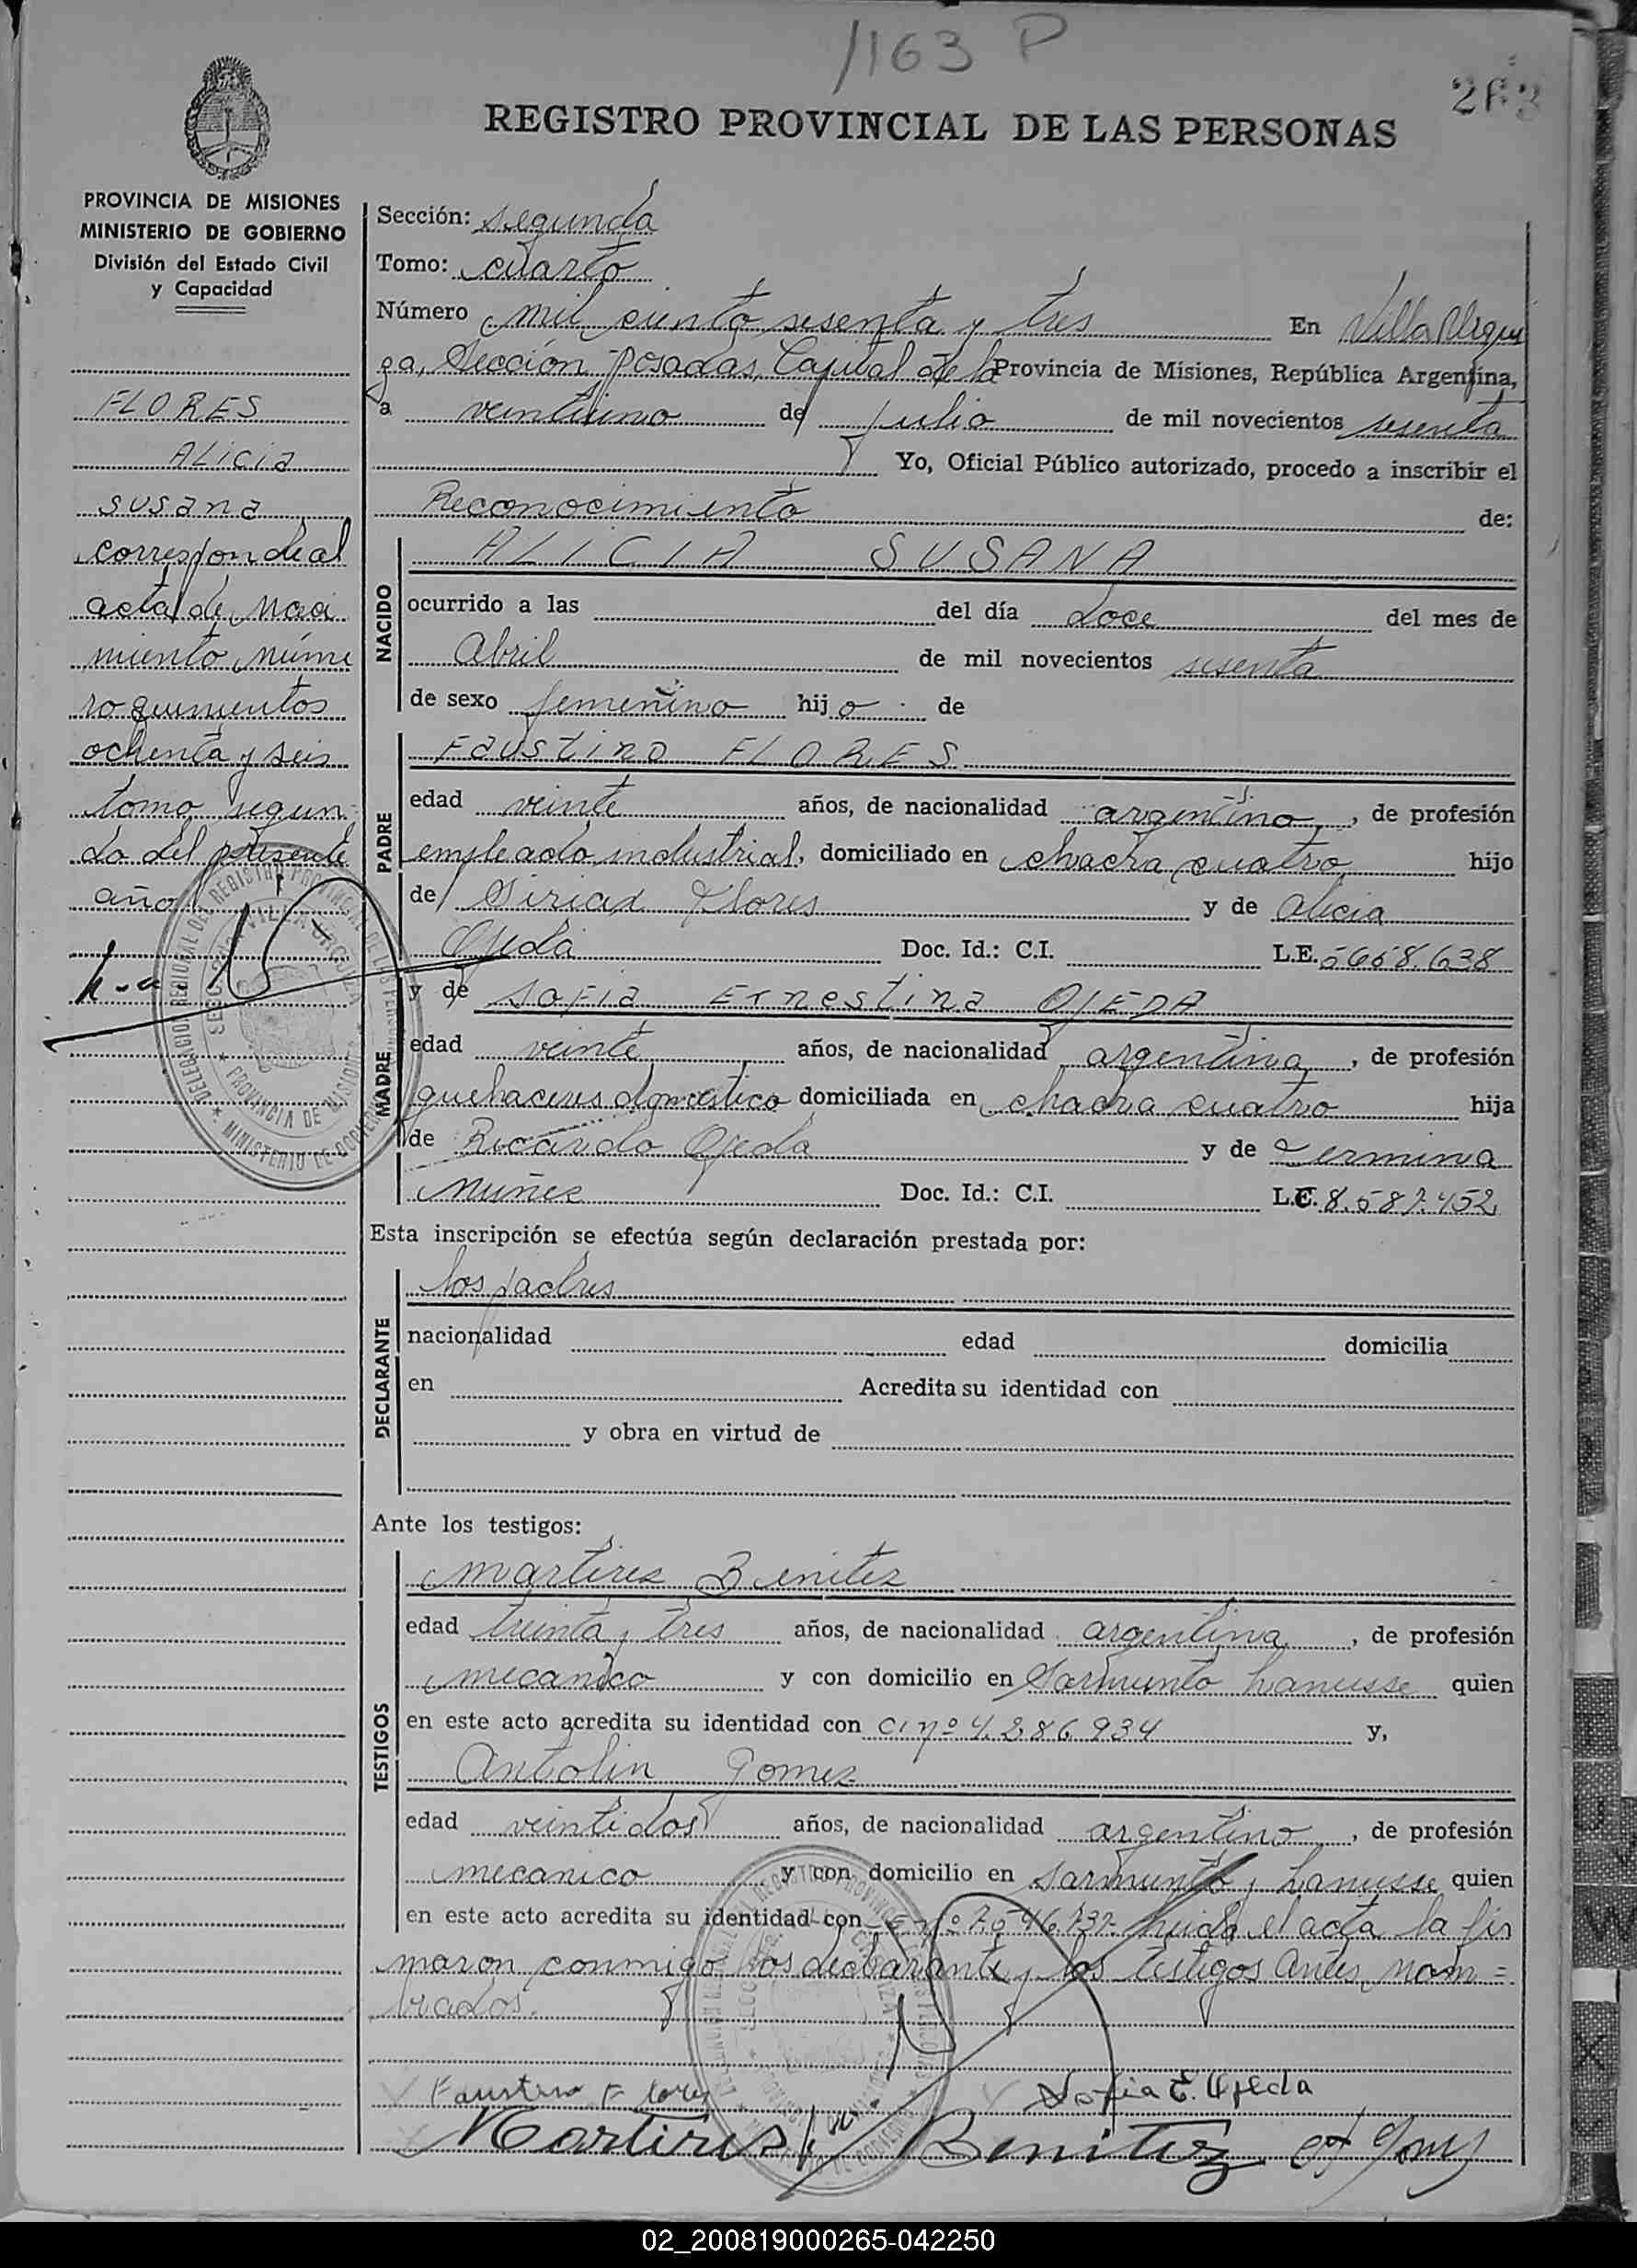 1163 P
263
REGISTRO PROVINCIAL DE LAS PERSONAS
PROVINCIA DE MISIONES
MINISTERIO DE GOBIERNO
División del Estado Civil
y Capacidad
FLORES
ALICIA
SUSANA
corresponde al
acta de naci
miento núme
ro quinientos
ochenta y seis
tomo segun-
do del presente
año
Sección: segunda
Tomo: cuarto
Número mil ciento sesenta y tres En Villa Urqui
za, Sección Posadas, Capital de la Provincia de Misiones, República Argentina,
a veintiuno de julio de mil novecientos sesenta
Yo, Oficial Público autorizado, procedo a inscribir el
Reconocimiento de:
NACIDO
ALICIA SUSANA
ocurrido a las del día doce del mes de
Abril de mil novecientos sesenta
de sexo femenino hijo de
PADRE
Faustino FLORES
edad veinte años, de nacionalidad argentino, de profesión
empleado industrial, domiciliado en chacra cuatro hijo
de Flores y de Alicia
Ojeda Doc. Id.: C.I. L.E. 5658.638
MADRE
y de Sofia Ernestina OJEDA
edad veinte años, de nacionalidad argentina, de profesión
quehaceres domestico domiciliada en chacra cuatro hija
de Ricardo Ojeda y de Erminia
Nuñez Doc. Id.: C.I. L.C. 8.587.452
Esta inscripción se efectúa según declaración prestada por:
DECLARANTE
los padres
nacionalidad edad domicilia
en Acredita su identidad con
y obra en virtud de
Ante los testigos:
TESTIGOS
Martires Benitez
edad treinta y tres años, de nacionalidad argentina, de profesión
mecanico y con domicilio en Sarmiento Lanusse quien
en este acto acredita su identidad con CI nº 4.286.934 y,
Antolin Gomez
edad veintidos años, de nacionalidad argentino, de profesión
mecanico y con domicilio en Sarmiento y Lanusse quien
en este acto acredita su identidad con nº 7.546.737- leida el acta la fir
maron conmigo los declarante y los testigos antes nom=
brados.
Faustino Flores Sofia E. Ojeda
Martires Benitez A Gomez
02_200819000265-042250